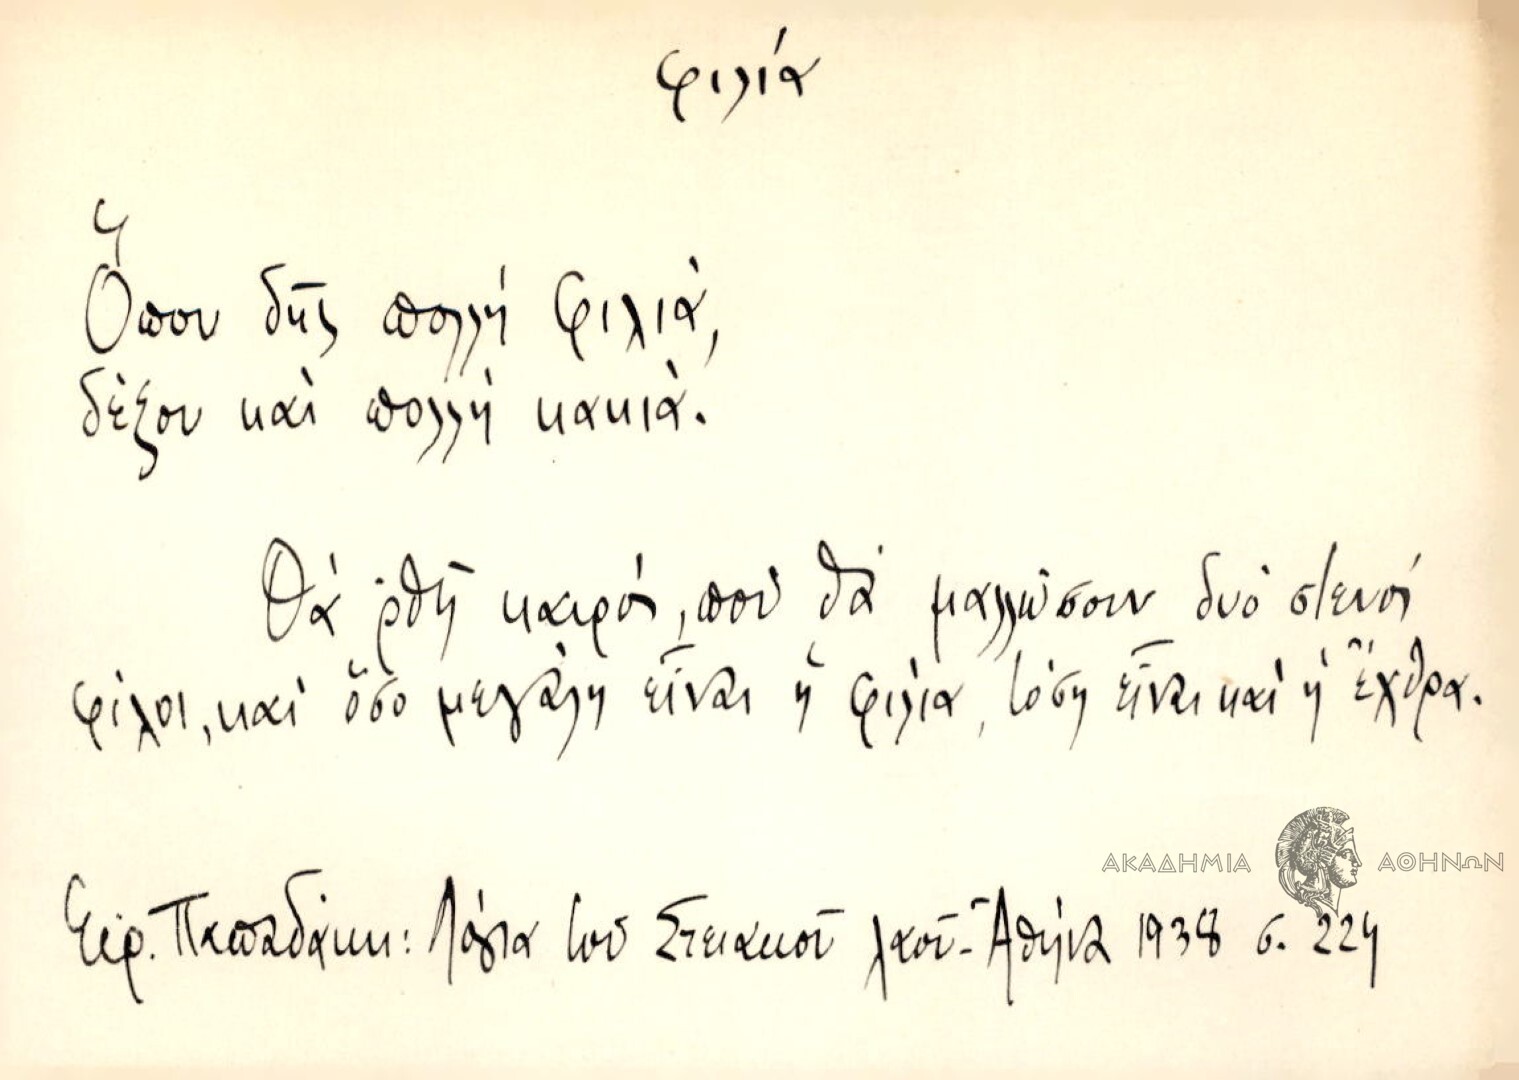 φιλία
Ὅπου δῇς πολλή φιλιὰ,
δέξου καὶ πολλὴ κακιὰ.
Θὰ ρθῇ καιρός, ποὺ θὰ μαλλώσουν δυὸ στενοί
φίλοι, καὶ ὅσο μεγάλη εἶναι ἡ φιλία, τόση εἶναι καὶ ἡ ἔχθρα.
Εἰρ. Παπαδάκη: Λόγια τοῦ Στειακοῦ λαοῦ - Ἀθήνα 1938 σ. 224
ΑΚΑΔΗΜΙΑ ΑΘΗΝΩΝ